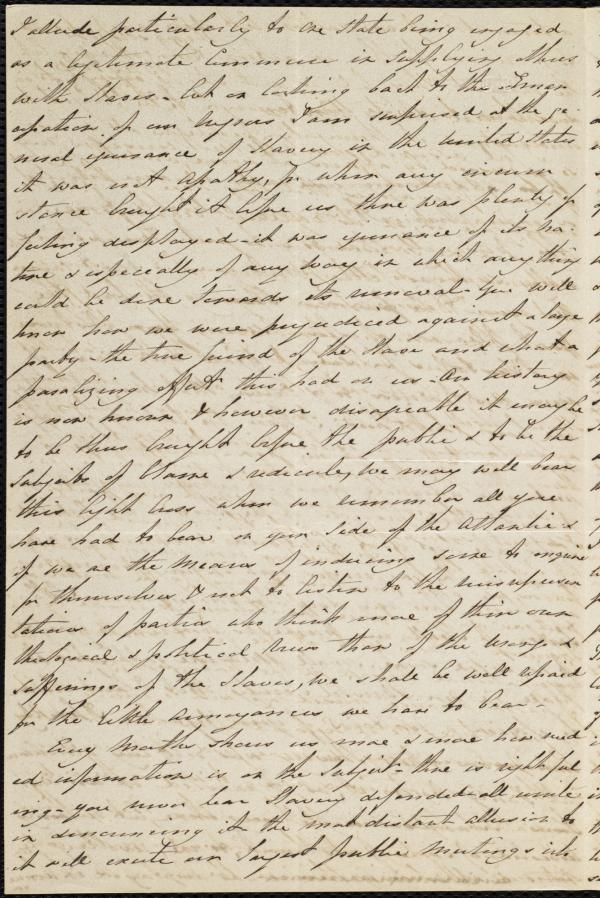 I allude particularly to one State being engaged
as a legitimate Commerce in supplying others
with Slaves - but on looking back to the Eman
cipation of our negroes I am surprised at the ge
neral ignorance of Slavery in the United States
it was not apathy, for when any circum
stance brought it before us there was plenty of
feeling displayed - it was ignorance of its na-
ture & especially of any way in which any thing
could be done towards its removal - You will
know how we were prejudiced against a large
party - the true friend of the Slave and what a
paralizing effect this had on us - Our history
is now known & however disagreeable it may be
to be thus brought before the public & to be the
subjects of blame & ridicule, we may well bear
this light Cross when we remember all you
have had to bear on your side of the Atlantic &
if we are the means of inducing some to enquire
for themselves & not to listen to the misrepresen
tations of parties who think more of their own
theological & political views than of the wrongs &
sufferings of the Slaves, we shall be well repaid
for the little annoyances we have to bear -
Every Month shows us more & more how need
ed information is on the subject - there is right feel
ing - you never hear Slavery defended - all unite
in denouncing it - the most distant allusion to
it will excite our largest public Meetings into